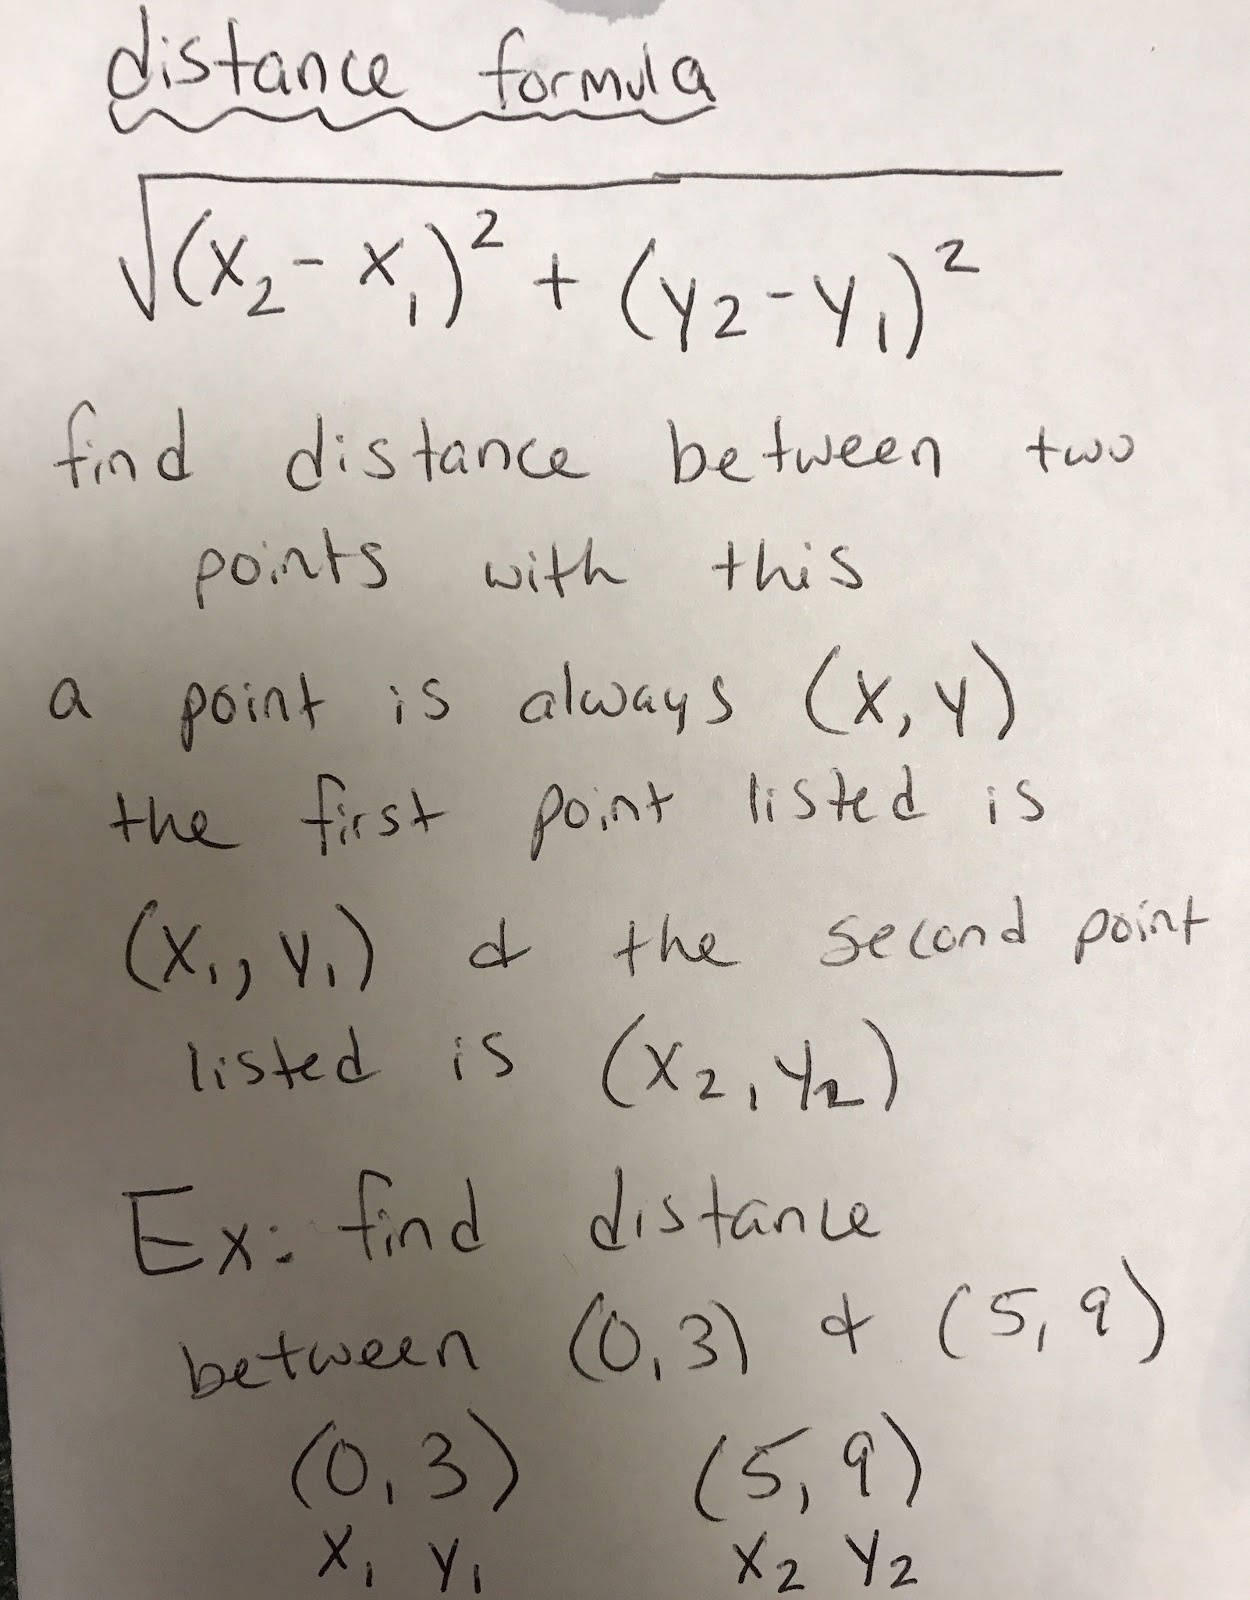 distance formula
√(x₂ - x₁)² + (y₂ - y₁)²
find distance between two
points with this
a point is always (x, y)
the first point listed is
(x₁, y₁) & the second point
listed is (x₂, y₂)
Ex: find distance
between (0, 3) & (5, 9)
(0, 3) (5, 9)
x₁ y₁ x₂ y₂